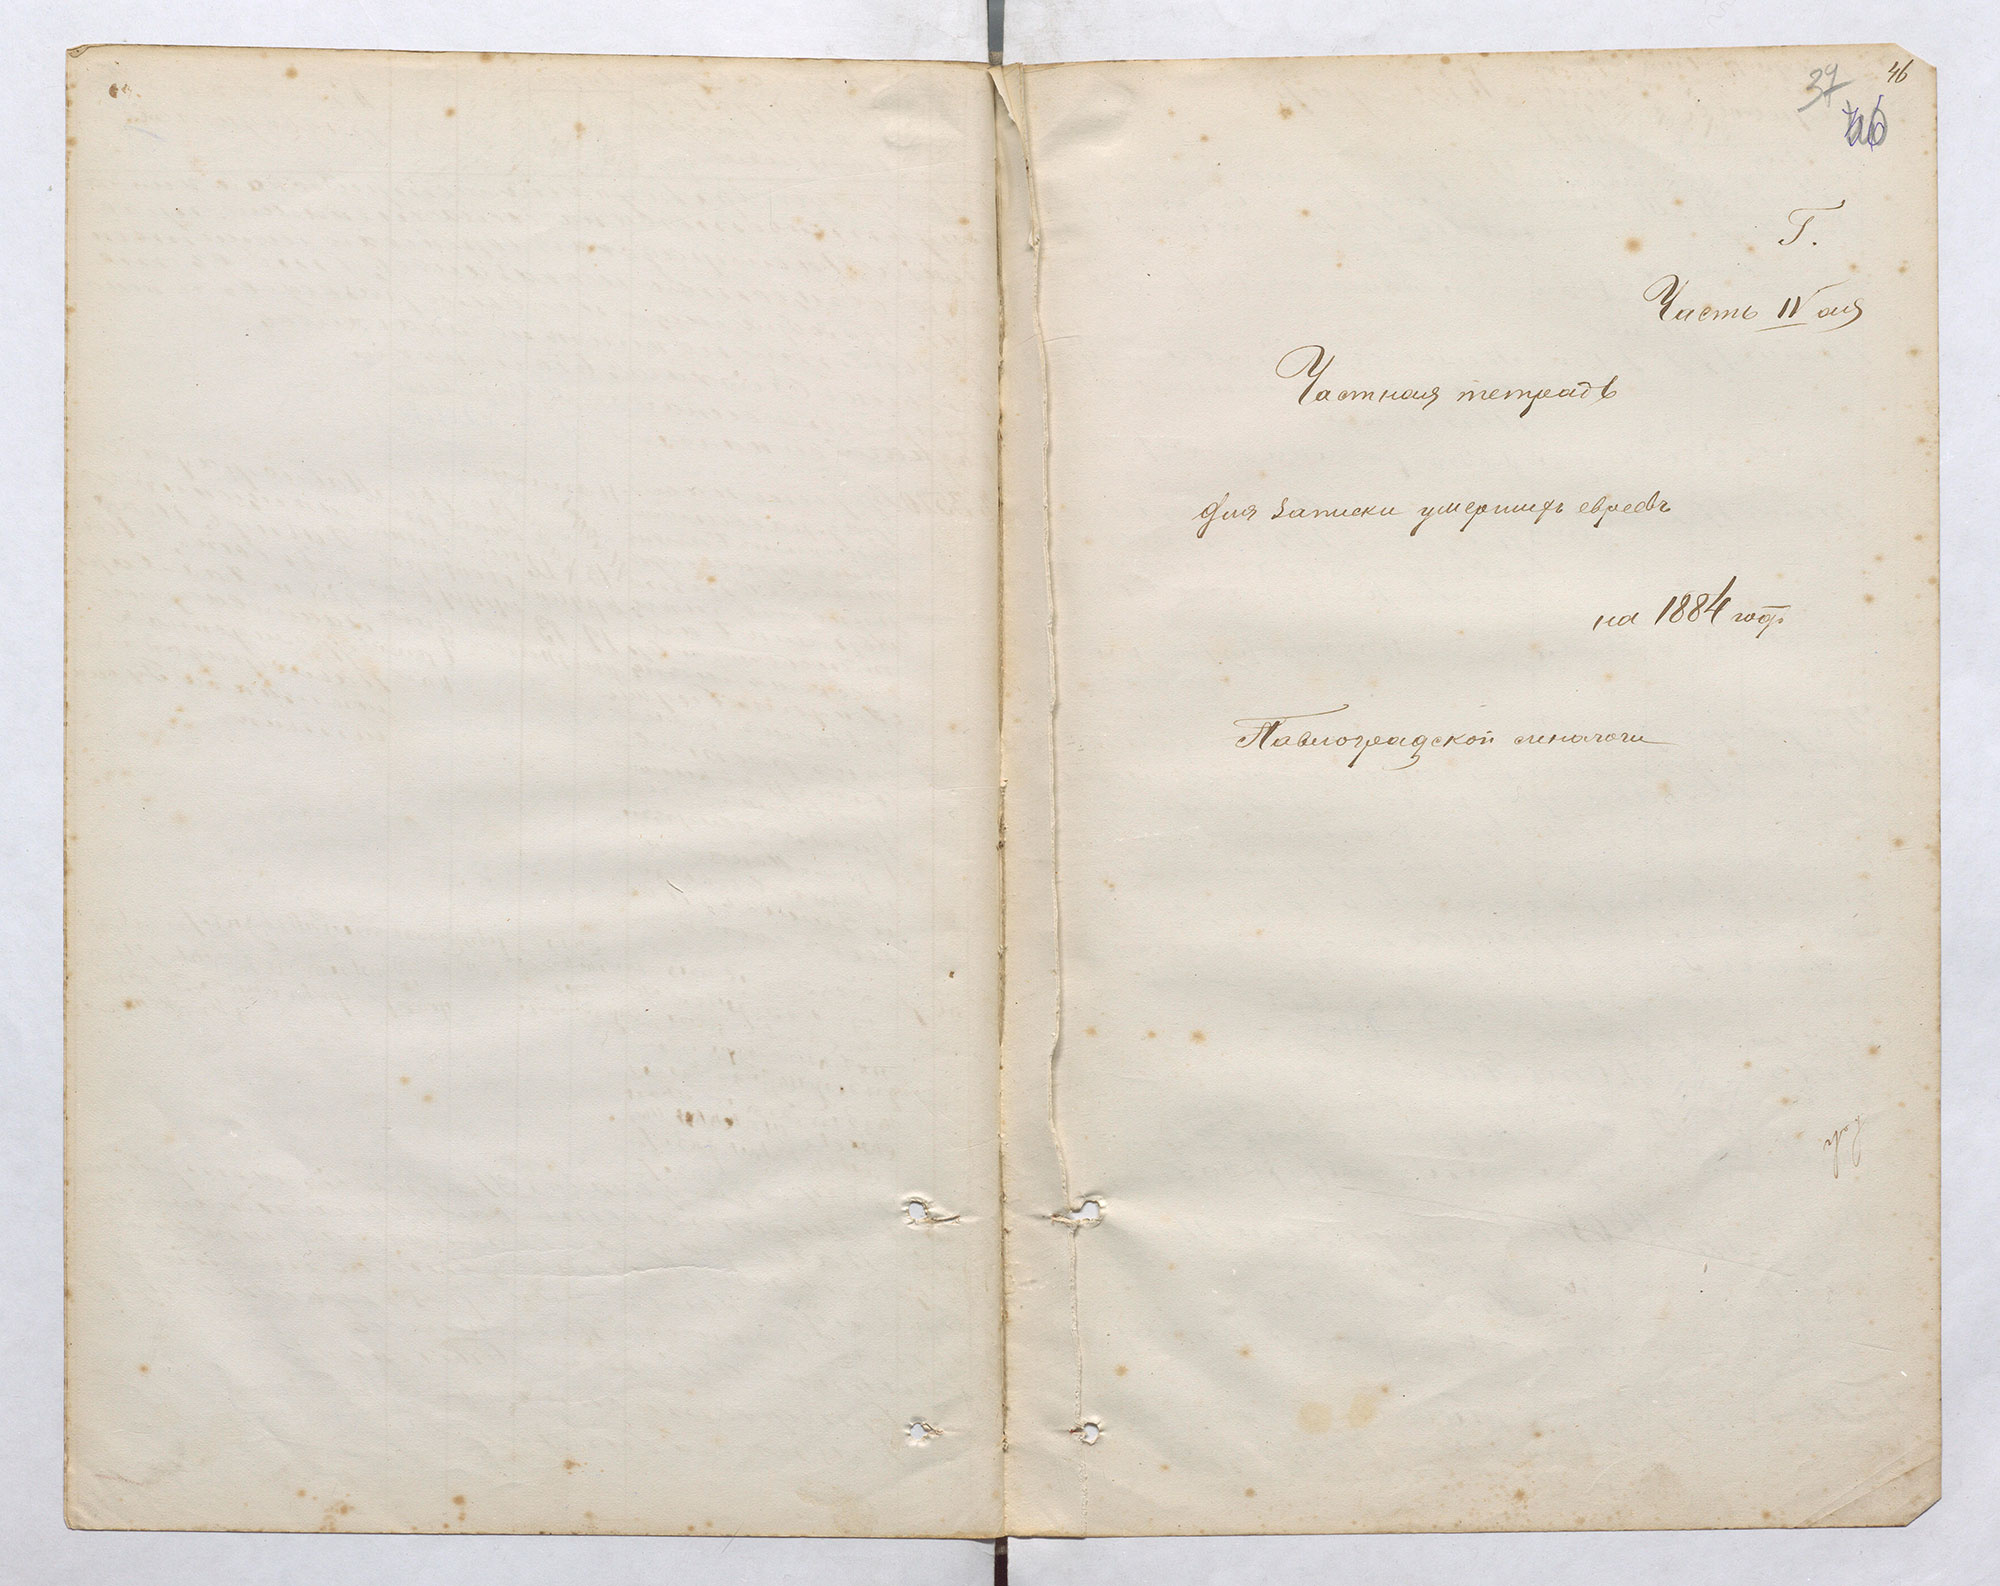 46
37
46
Г.
Часть IV ая
Частная тетрадь
для записки умершихъ евреевъ
на 1884 годъ
Павлоградской синагоги